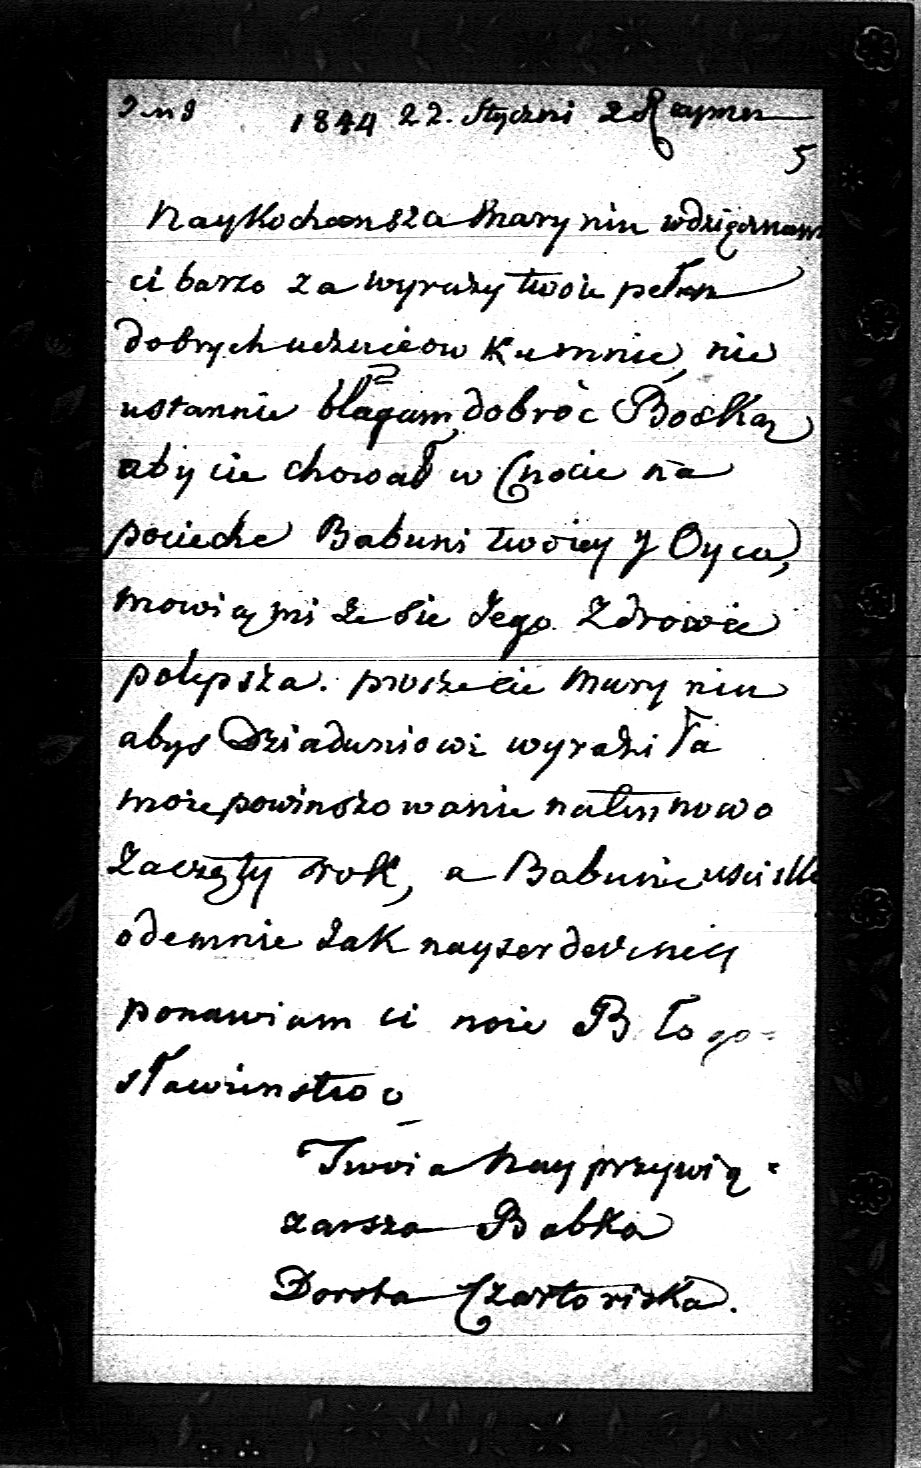 1844 22. Styczni z Rzymu
5
Naykochansza Maryniu wdzięcznam
ci barzo za wyrazy twoie pełne
dobrych uczuciow ku mnie, nie
ustannie błagam dobróc Boską
aby cie chował w Cnocie na
pocieche Babuni twoiey y Oyca,
mowią mi że sie Jego Zdrowie
polepsza. prosze cie Maryniu
abys Dziaduniowi wyraziła
moie powinszowanie na ten nowo
Zaczęty rok, a Babunie uscisk
odemnie Jak nayserdeczniey
ponawiam ci moie Błogo-
sławienstwo
Twoia Nayprzywią-
zansza Babka
Dorota Czartoriska.